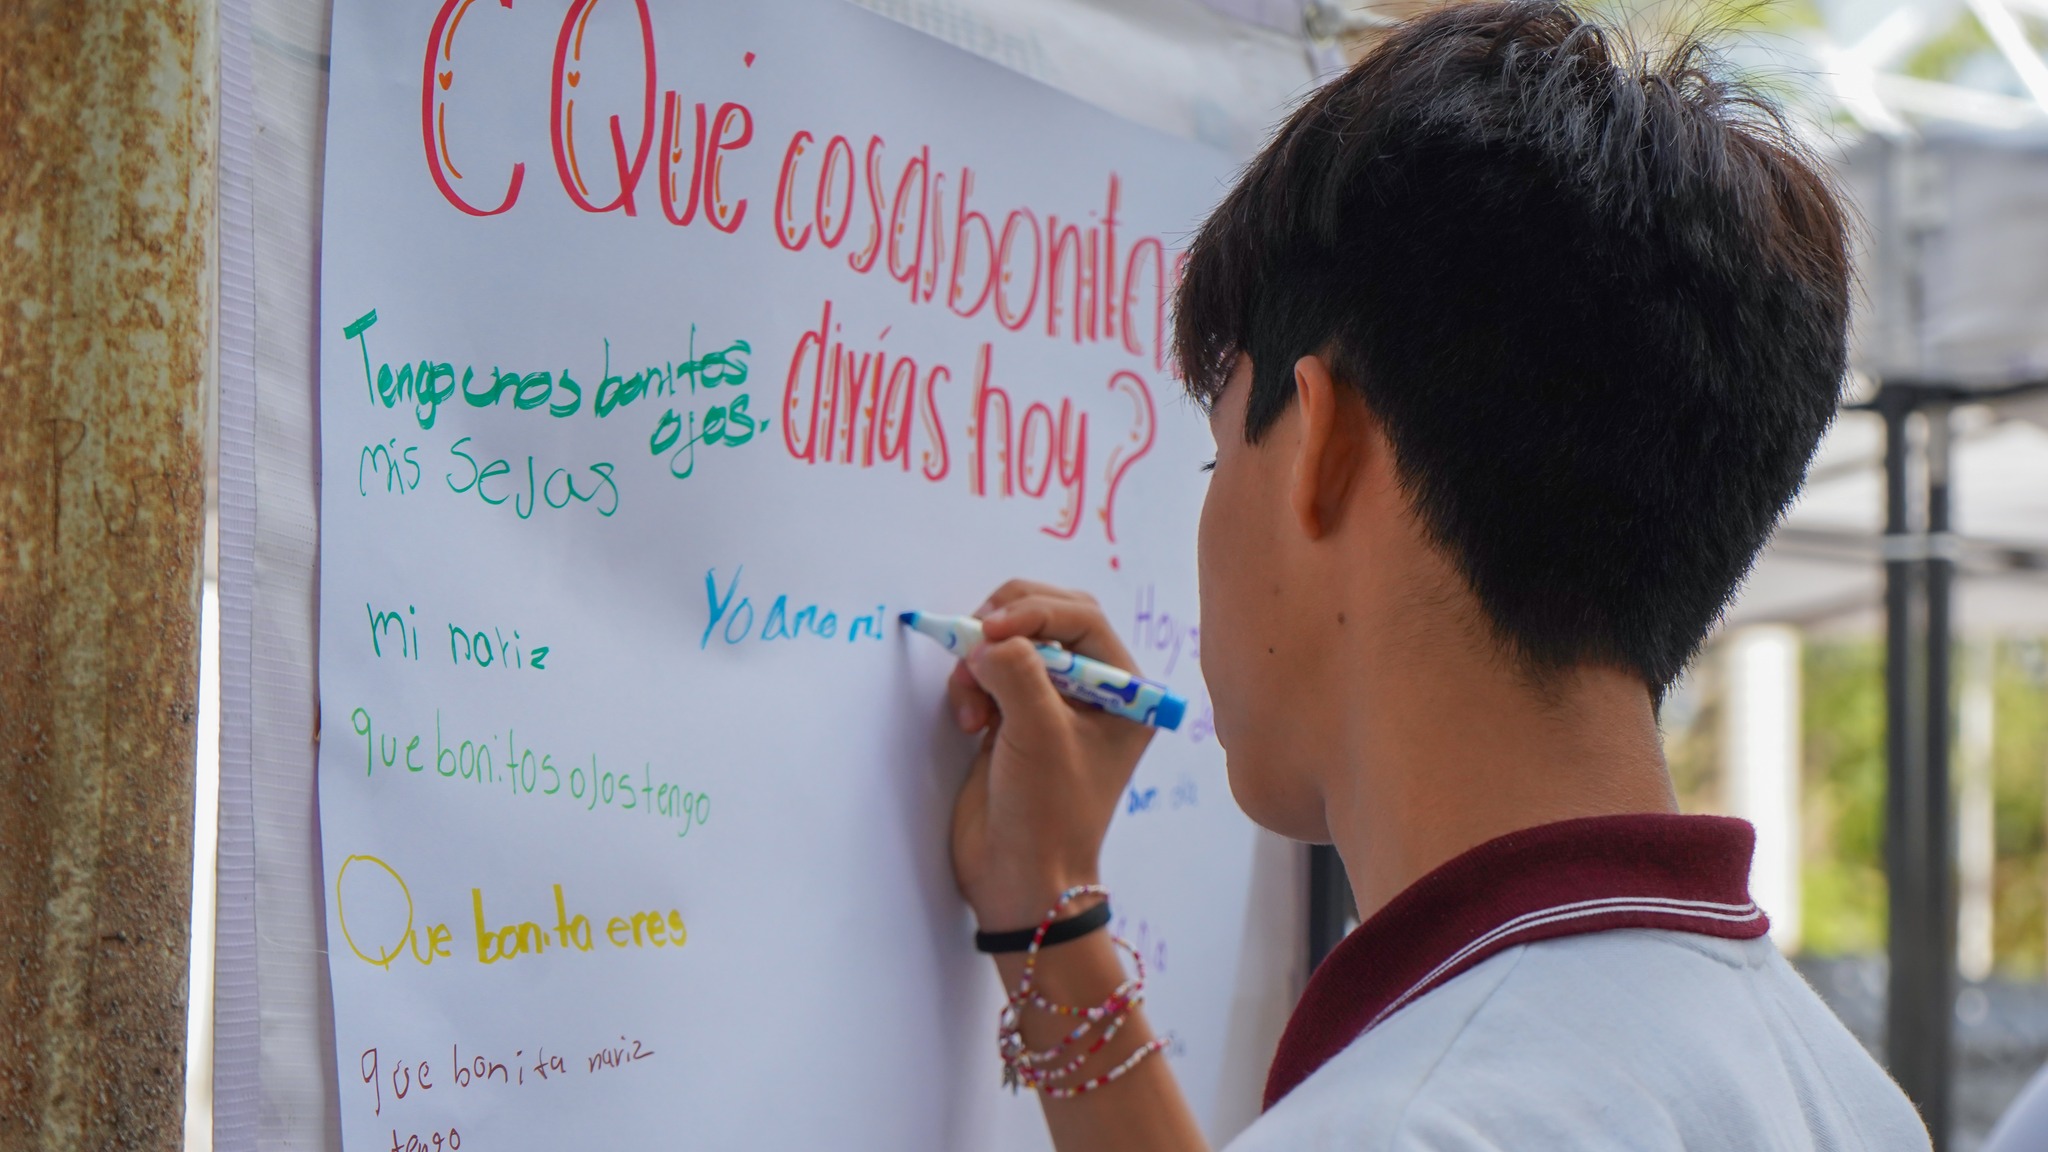 ¿Qué cosas bonitas
dirías hoy?
Tengo unos bonitos
ojos.
mis sejas
mi nariz
que bonitos ojos tengo
Que bonita eres
que bonita nariz
tengo
Yo amo mi
Hoy